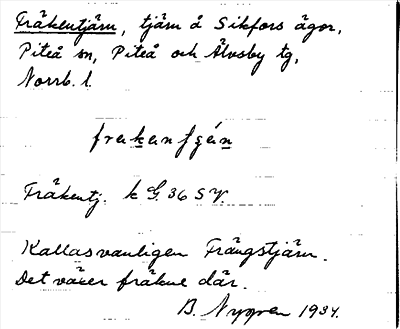 Fräkentjärn, tjärn å Sikfors ägor,
Piteå sn, Piteå och Älvsby tg,
Norrb. l.
Fräkentj. k G. 36 SV.
Kallas vanligen Frängstjärn.
Det växer fräkne där.
B. Nygren 1934.